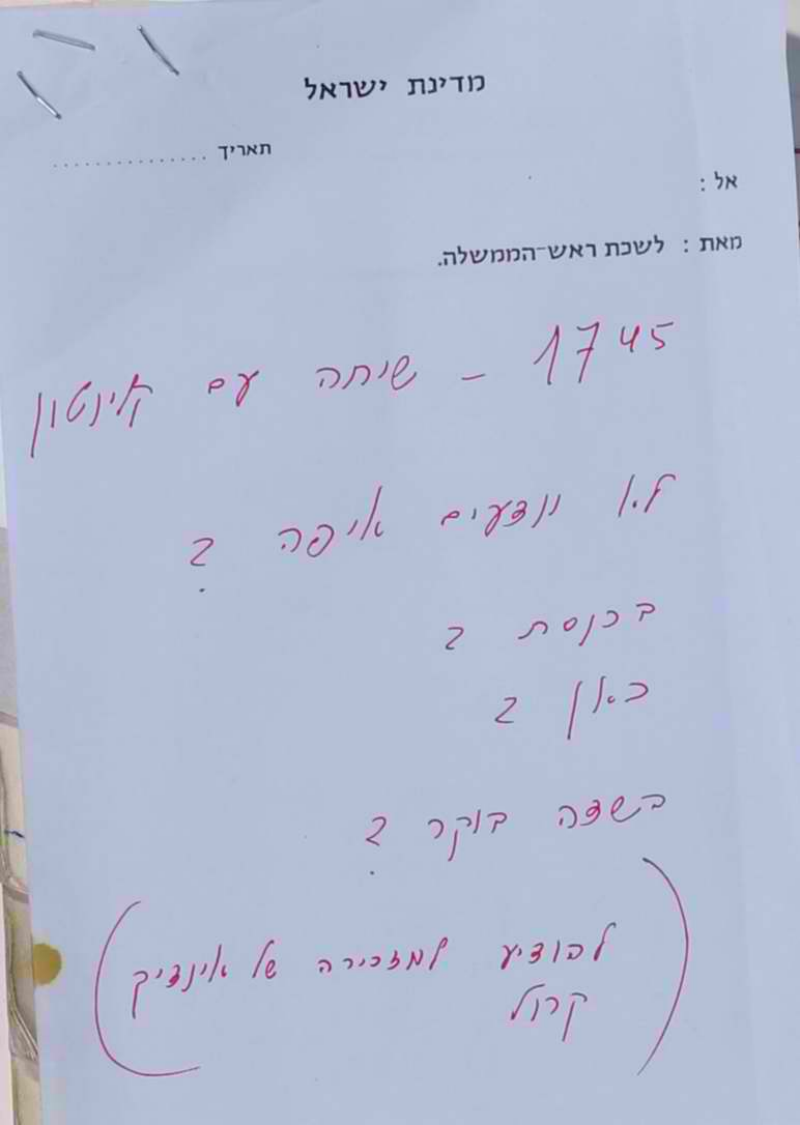 מדינת ישראל
תאריך ...............
אל :
מאת : לשכת ראש-הממשלה.
1745 - שיחה עם קלינטון
לא יודעים איפה ?
בכנסת ?
כאן ?
בשדה בוקר ?
(להודיע למזכירה של אינדיק
קרול)